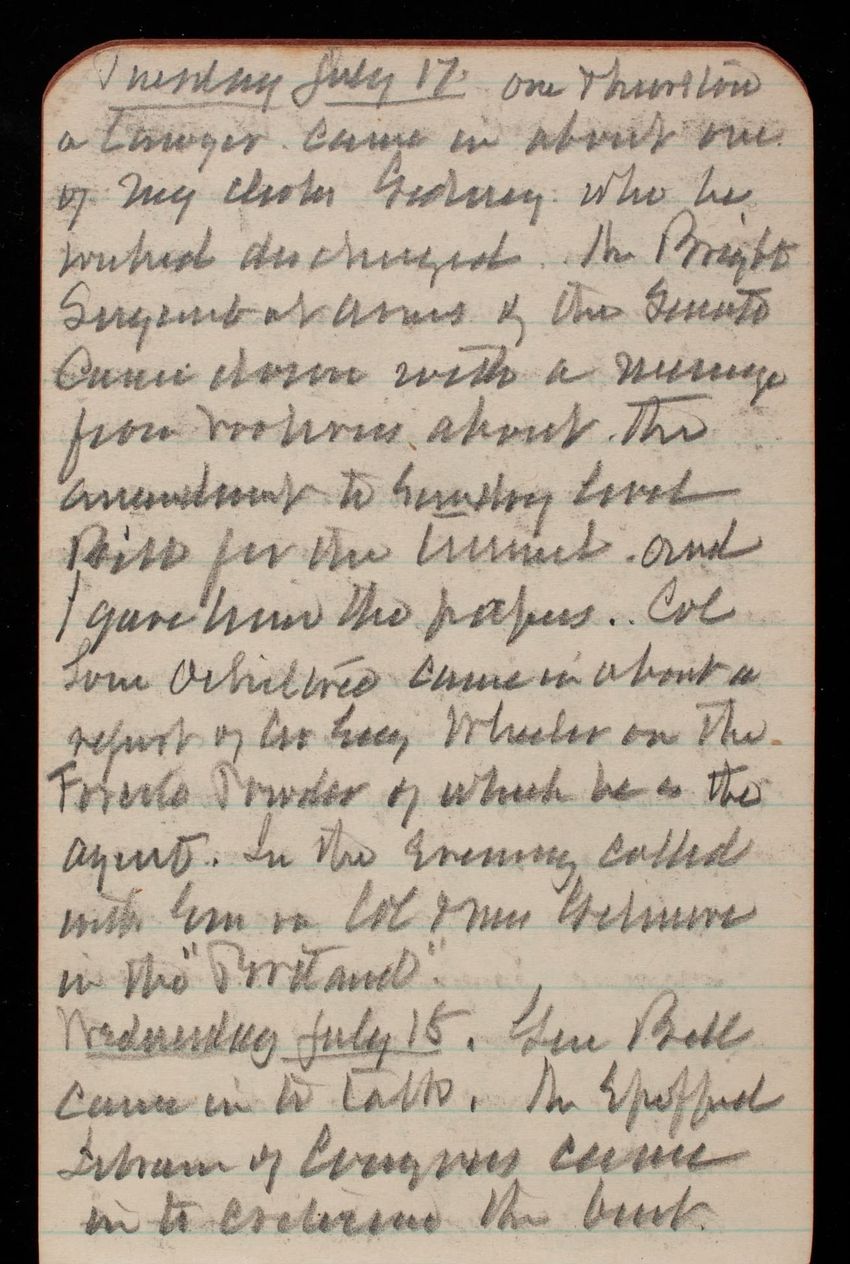 Tuesday July 17. one Thurston
a lawyer came in about one
of my clerks Gedney who he
wished discharged. Mr Bright
Sergent at Arms of the Senate
Came down with a message
from Voorhees about the
amendment to Sundry Civil
Bill for the tunnel. and
I gave him the papers.. Col
Tom Ochiltree came in about a
report of Geo Wheeler on the
Forcite Powder of which he is the
agent. In the evening called
with Em on Col & Mrs Gilmore
in the "Portland".
Wednesday July 18. Gen Bell
came in to talk. Mr Spofford
Librarn of Congress came
in to criticise the bust.